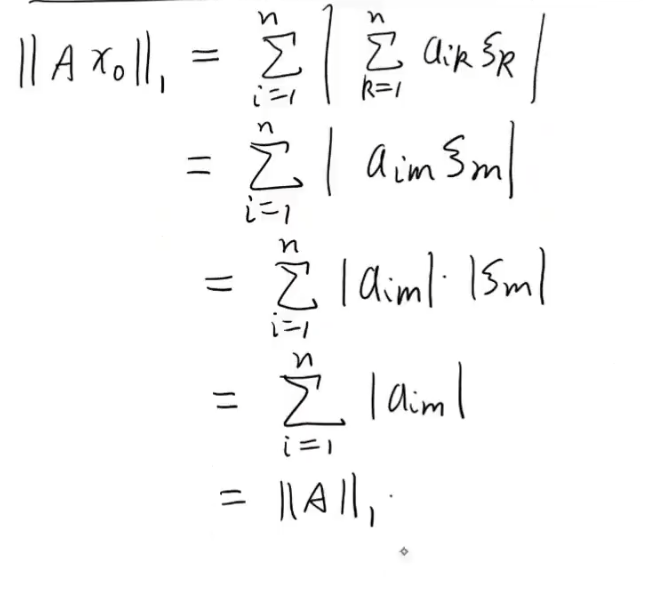 ‖A x₀‖₁ = ∑ᵢ₌₁ⁿ | ∑ₖ₌₁ⁿ aᵢₖ ξₖ |
= ∑ᵢ₌₁ⁿ | aᵢₘ ξₘ |
= ∑ᵢ₌₁ⁿ |aᵢₘ| · |ξₘ|
= ∑ᵢ₌₁ⁿ |aᵢₘ|
= ‖A‖₁.